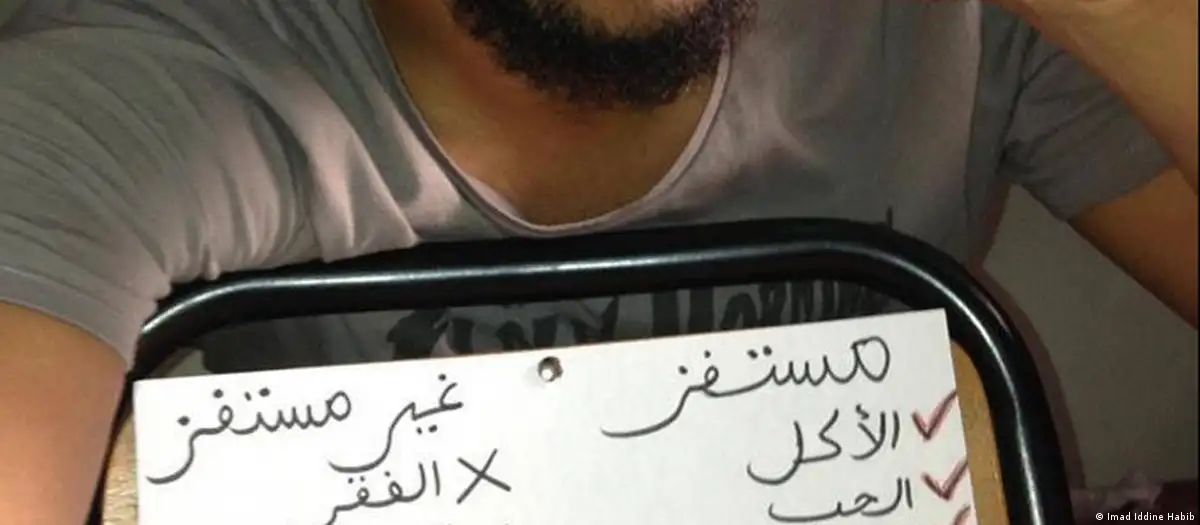 مستفز
✓ الأكل
✓ الحب
غير مستفز
X الفقر
© Imad Iddine Habib